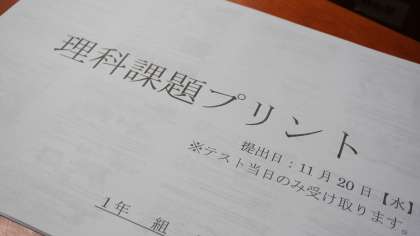 理科課題プリント
提出日：11月20日【水】
※テスト当日のみ受け取ります。
1年 組